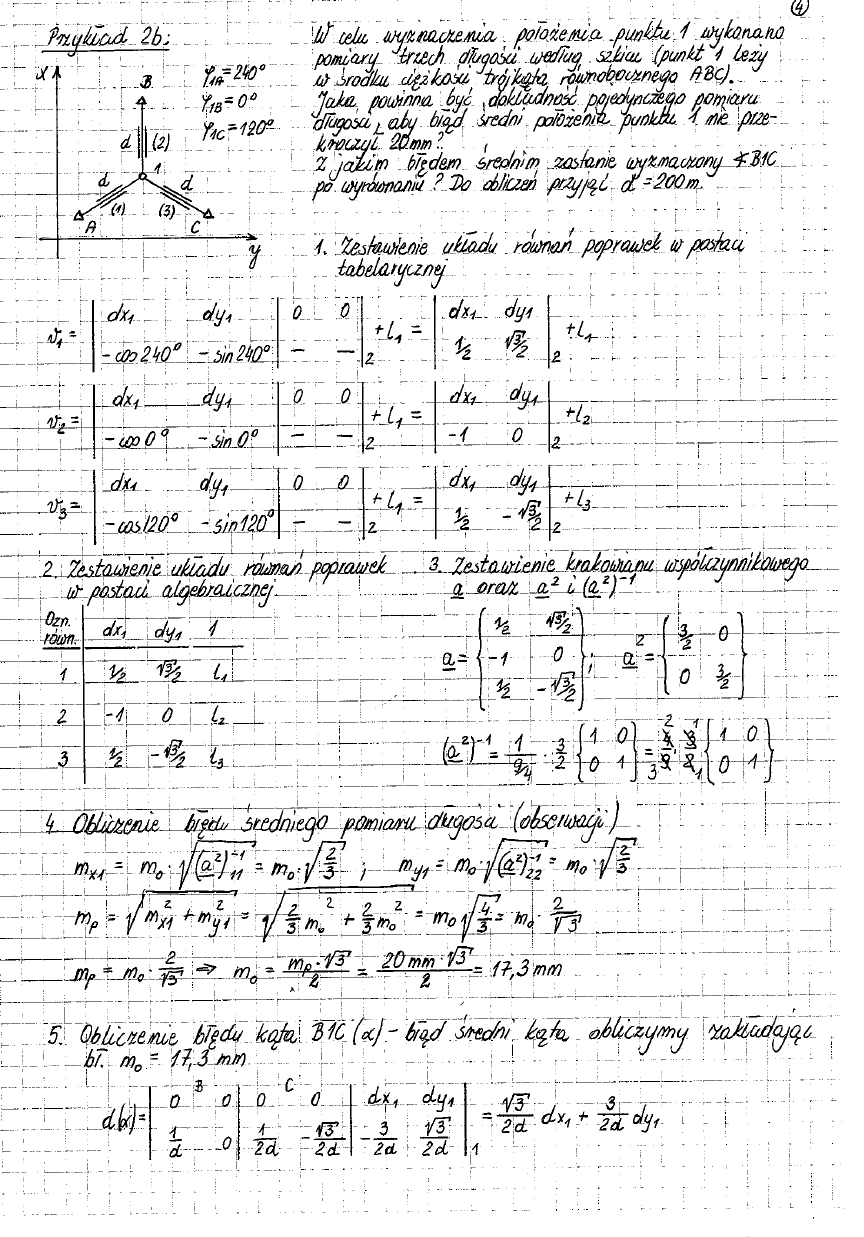 ④
Przykład 2b:
x
B
φ1A = 240°
φ1B = 0°
φ1C = 120°
d (2)
1
d d
(1) (3)
A C
y
W celu wyznaczenia położenia punktu 1 wykonano
pomiary trzech długości według szkicu (punkt 1 leży
w środku ciężkości trójkąta równobocznego ABC).
Jaka powinna być dokładność pojedynczego pomiaru
długości, aby błąd średni położenia punktu 1 nie prze-
kroczył 20mm?
Z jakim błędem średnim zostanie wyznaczony ∢B1C
po wyrównaniu? Do obliczeń przyjąć d = 200m.
1. Zestawienie układu równań poprawek w postaci
tabelarycznej
v1 = | dx1 dy1 | 0 0 | + l1 = | dx1 dy1 | + l1
| -cos240° -sin240° | — — |2 | 1/2 √3/2 |2
v2 = | dx1 dy1 | 0 0 | + l1 = | dx1 dy1 | + l2
| -cos0° -sin0° | — — |2 | -1 0 |2
v3 = | dx1 dy1 | 0 0 | + l1 = | dx1 dy1 | + l3
| -cos120° -sin120° | — — |2 | 1/2 -√3/2 |2
2. Zestawienie układu równań poprawek
w postaci algebraicznej
Ozn. równ. dx1 dy1 1
1 1/2 √3/2 l1
2 -1 0 l2
3 1/2 -√3/2 l3
3. Zestawienie krakowianu współczynnikowego
a oraz a² i (a²)⁻¹
a = { 1/2 √3/2
-1 0
1/2 -√3/2 } ; a² = { 3/2 0
0 3/2 }
(a²)⁻¹ = 1/(9/4) · 3/2 { 1 0
0 1 } = 4/9 · 3/2 { 1 0
0 1 }
4. Obliczenie błędu średniego pomiaru długości (obserwacji)
mx1 = m0 · √(a²)⁻¹11 = m0 · √2/3 ; my1 = m0 · √(a²)⁻¹22 = m0 · √2/3
mp = √mx1² + my1² = √2/3 m0² + 2/3 m0² = m0 √4/3 = m0 · 2/√3
mp = m0 · 2/√3 ⇒ m0 = mp·√3/2 = 20 mm · √3/2 = 17,3 mm
5. Obliczenie błędu kąta B1C (α) - błąd średni kąta obliczymy zakładając
bł. m0 = 17,3 mm
d(α) = | 0 B 0 | 0 C 0 | dx1 dy1 | = √3/2d dx1 + 3/2d dy1
| 1/d 0 | 1/2d -√3/2d | -3/2d √3/2d |1